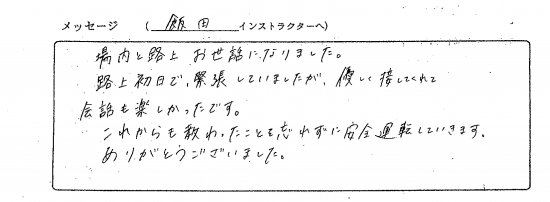 メッセージ （ 飯田 インストラクターへ）
場内と路上 お世話になりました。
路上初日で、緊張していましたが、優しく接してくれて
会話も楽しかったです。
これからも教わったことも忘れずに安全運転していきます。
ありがとうございました。